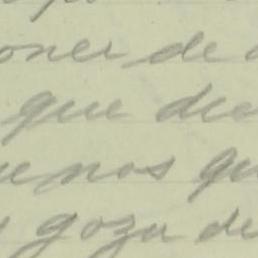 oner de
que die
enos qu
y goza de